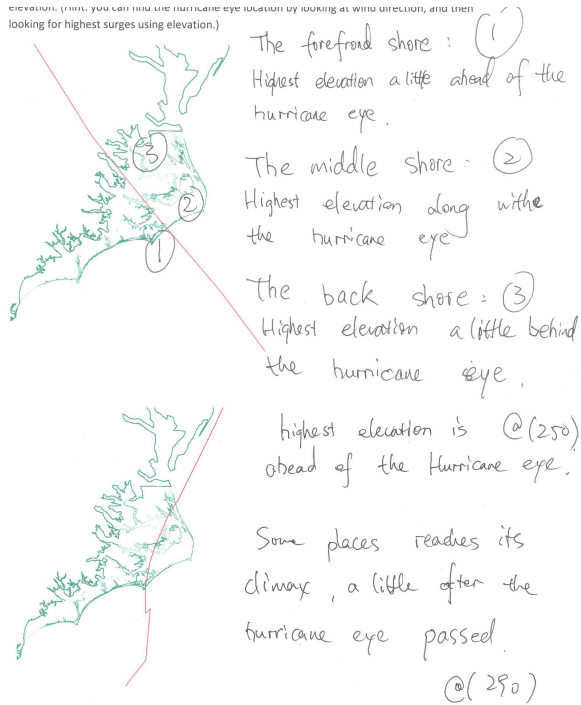 elevation. (Hint: you can find the hurricane eye location by looking at wind direction, and then
looking for highest surges using elevation.)
The forefrond shore : ①
Highest elevation a little ahead of the
hurricane eye.
③
②
①
The middle shore : ②
Highest elevation along withe
the hurricane eye
The back shore : ③
Highest elevation a little behind
the hurricane eye.
highest elevation is @(250)
ahead of the Hurricane eye.
Some places reaches its
climax, a little after the
hurricane eye passed.
@(290)